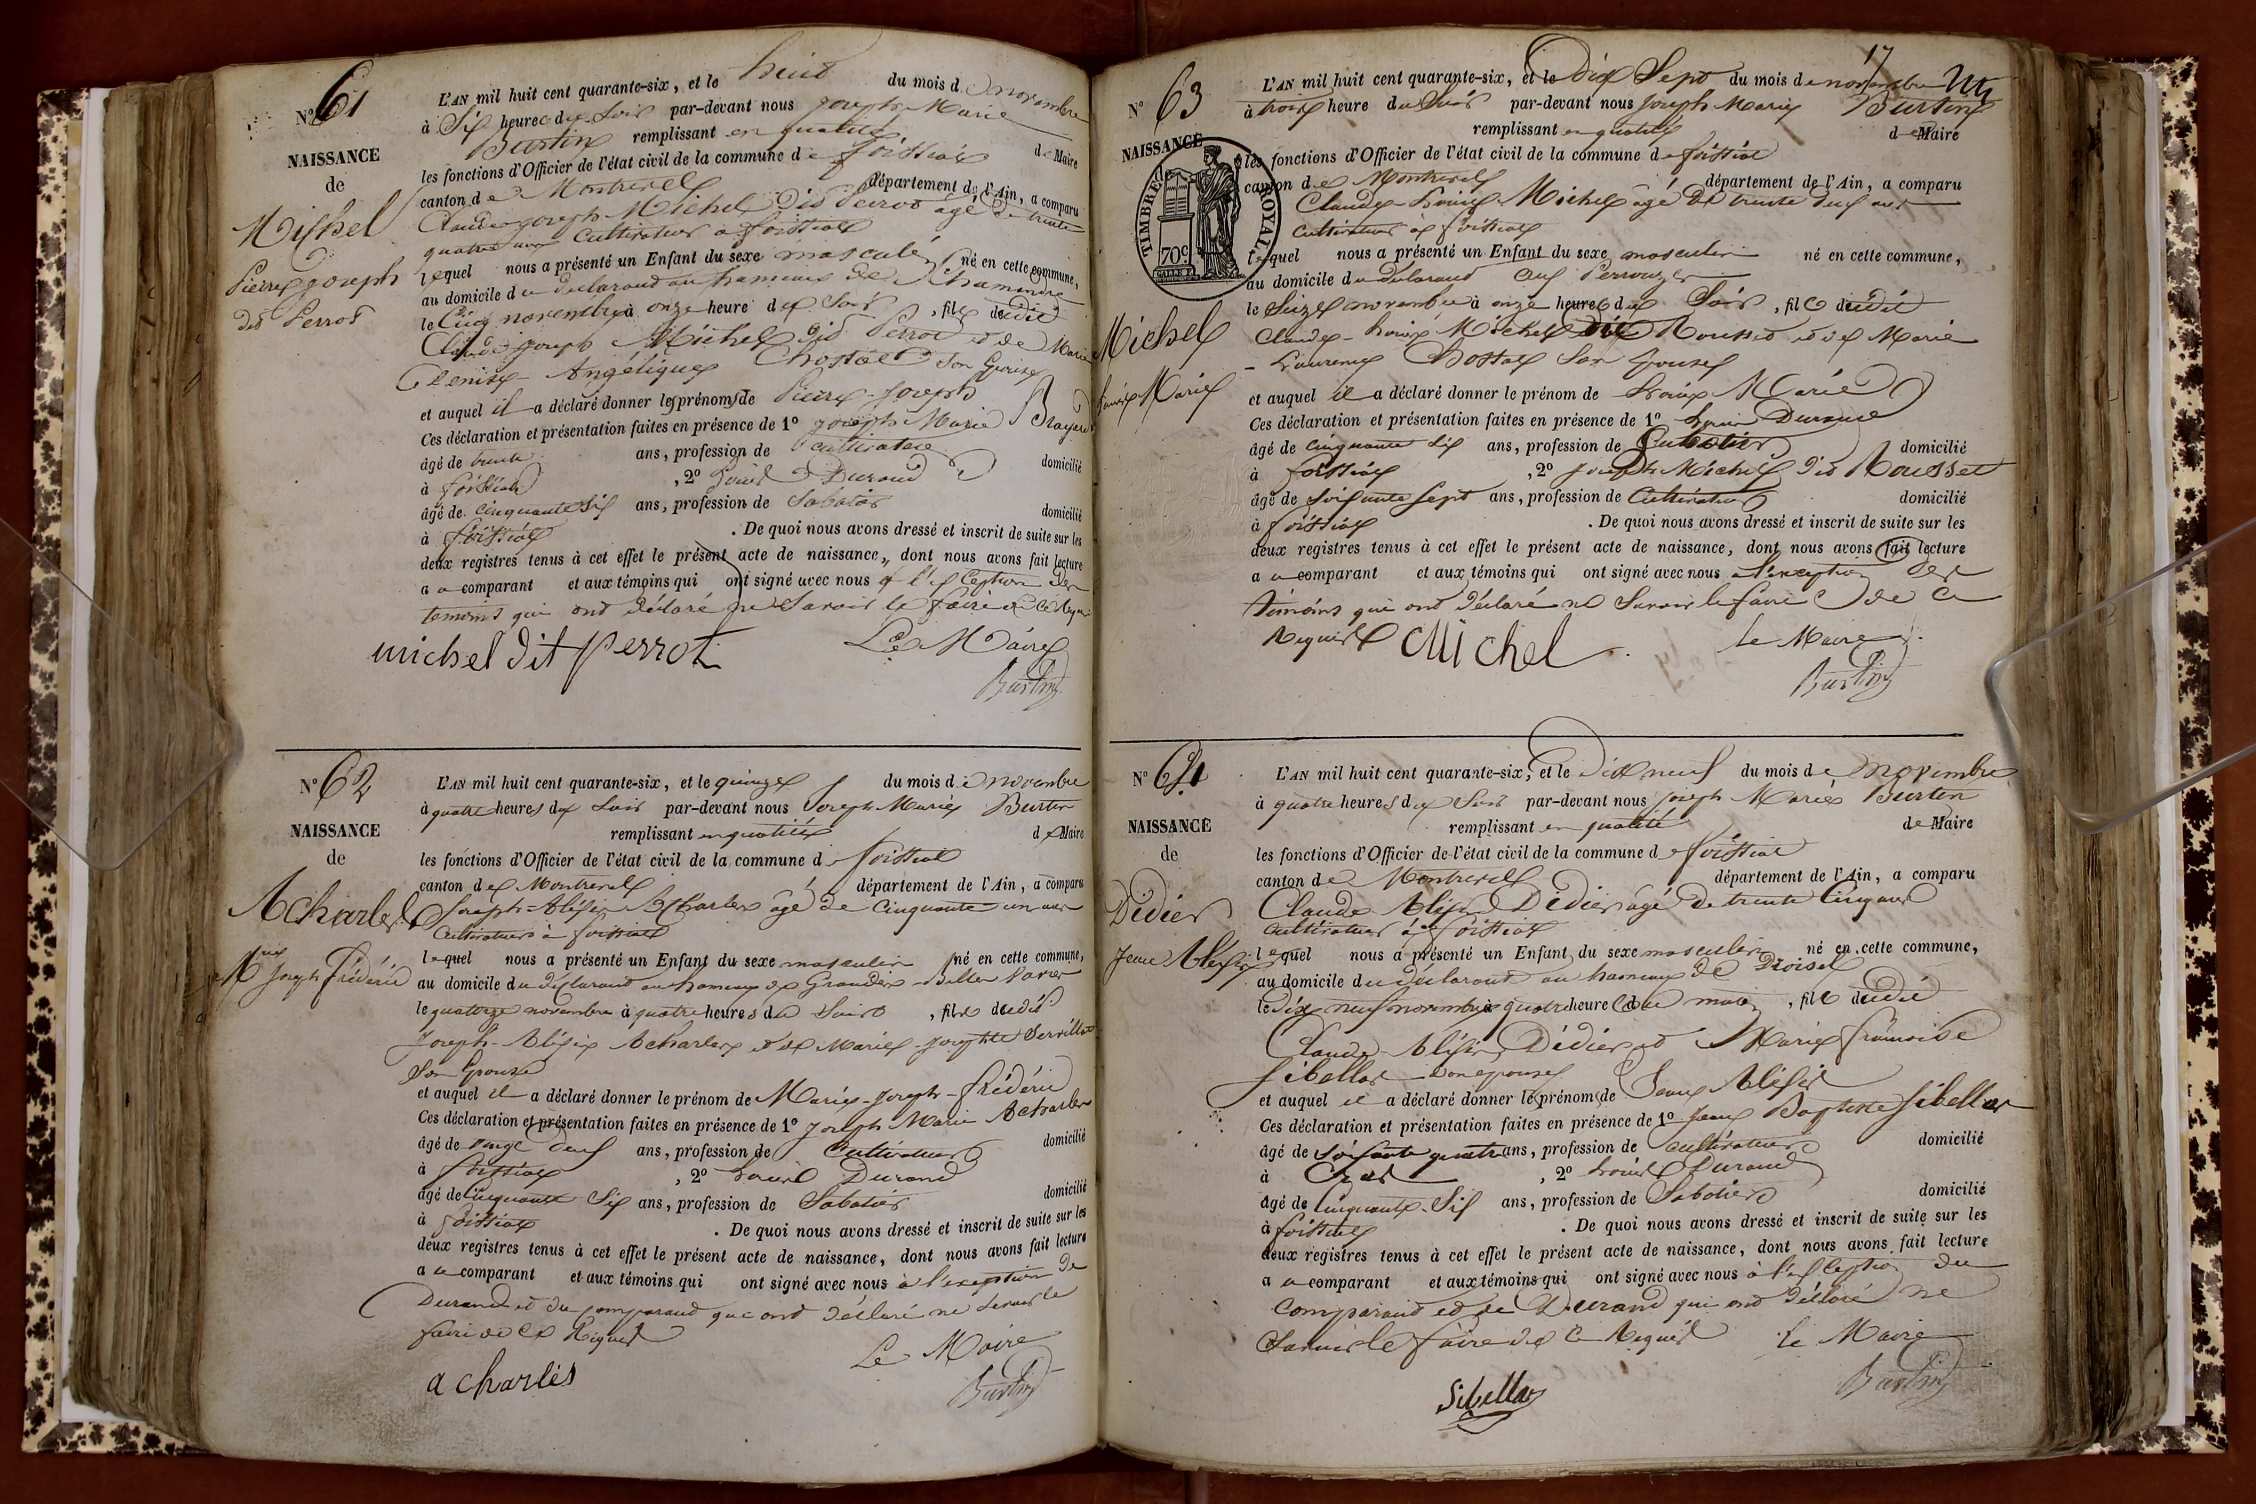 N° 61
NAISSANCE
de
Michel
Pierre Joseph
dit Perrot
L'AN mil huit cent quarante-six, et le huit du mois de novembre
à Six heures du Soir par-devant nous Joseph Marie
Burtin remplissant en qualité de Maire
les fonctions d'Officier de l'état civil de la commune de foissiat
canton de Montrevel département de l'Ain, a comparu
Claude Joseph Michel dit Perrot âgé de trente
quatre ans Cultivateur à foissiat
lequel nous a présenté un Enfant du sexe masculin né en cette commune,
au domicile du declarant au hameau de
le Cinq novembre à onze heure du Soir, fils dudit
Claude Joseph Michel dit Perrot et de Marie
Denise Angélique Chostal Son Epouse
et auquel il a déclaré donner les prénoms de Pierre Joseph
Ces déclaration et présentation faites en présence de 1° Joseph Marie
âgé de trente ans, profession de Cultivateur domicilié
à foissiat, 2° Louis Durand
âgé de cinquante six ans, profession de Sabotier domicilié
à foissiat. De quoi nous avons dressé et inscrit de suite sur les
deux registres tenus à cet effet le présent acte de naissance, dont nous avons fait lecture
au comparant et aux témoins qui ont signé avec nous à l'exception des
temoins qui ont déclaré ne Savoir le faire de ce requis
michel dit perrot Le Maire
Burtin
N° 62
NAISSANCE
de
Acharles
Mie Joseph Frédéric
L'AN mil huit cent quarante-six, et le quinze du mois de novembre
à quatre heures du Soir par-devant nous Joseph Marie Burtin
remplissant en qualité de Maire
les fonctions d'Officier de l'état civil de la commune de foissiat
canton de Montrevel département de l'Ain, a comparu
Joseph-Alexis Acharles âgé de cinquante un ans
Cultivateur à foissiat
lequel nous a présenté un Enfant du sexe masculin né en cette commune,
au domicile du déclarant au hameau de
le quatorze novembre à quatre heures du Soir, fils dudit
Joseph-Alexis Acharles et de Marie-Josephte
Son Epouse
et auquel il a déclaré donner le prénom de Marie-Joseph-frédéric
Ces déclaration et présentation faites en présence de 1° Joseph Marie Acharles
âgé de vingt deux ans, profession de Cultivateur domicilié
à foissiat, 2° Louis Durand
âgé de Cinquante Six ans, profession de Sabotier domicilié
à foissiat. De quoi nous avons dressé et inscrit de suite sur les
deux registres tenus à cet effet le présent acte de naissance, dont nous avons fait lecture
au comparant et aux témoins qui ont signé avec nous à l'exception de
Durand et du comparant qui ont déclaré ne Savoir le
faire de ce Requis
a charles Le Maire
Burtin
17
N° 63
NAISSANCE
de
TIMBRE ROYAL
70c
Michel
Louis Marie
L'AN mil huit cent quarante-six, et le Dix Sept du mois de novembre
à trois heure du Soir par-devant nous Joseph Marie Burtin
remplissant en qualité de Maire
les fonctions d'Officier de l'état civil de la commune de foissiat
canton de Montrevel département de l'Ain, a comparu
Claude-Louis Michel âgé de trente deux ans
Cultivateur à foissiat
lequel nous a présenté un Enfant du sexe masculin né en cette commune,
au domicile du declarant
le Seize novembre à onze heures du Soir, fils dudit
Claude-Louis Michel dit Rousset et de Marie
Laurence Chostal Son Epouse
et auquel il a déclaré donner le prénom de Louis Marie
Ces déclaration et présentation faites en présence de 1° Louis Durand
âgé de cinquante six ans, profession de Sabotier domicilié
à foissiat, 2° Joseph Michel dit Rousset
âgé de Soixante Sept ans, profession de Cultivateur domicilié
à foissiat. De quoi nous avons dressé et inscrit de suite sur les
deux registres tenus à cet effet le présent acte de naissance, dont nous avons fait lecture
au comparant et aux témoins qui ont signé avec nous à l'exception des
témoins qui ont déclaré ne Savoir le faire de ce
Requis Michel Le Maire
Burtin
N° 64
NAISSANCE
de
Didier
Jean Alexis
L'AN mil huit cent quarante-six, et le dix neuf du mois de novembre
à quatre heures du Soir par-devant nous Joseph Marie Burtin
remplissant en qualité de Maire
les fonctions d'Officier de l'état civil de la commune de foissiat
canton de Montrevel département de l'Ain, a comparu
Claude Alexis Didier âgé de trente Cinq ans
Cultivateur à foissiat
lequel nous a présenté un Enfant du sexe masculin né en cette commune,
au domicile du déclarant au hameau de
le dix neuf novembre à quatre heure du matin, fils dudit
Claude Alexis Didier et Marie françoise
Sibellas son epouse
et auquel il a déclaré donner les prénoms de Jean Alexis
Ces déclaration et présentation faites en présence de 1° Jean Baptiste Sibellas
âgé de Soixante quatre ans, profession de Cultivateur domicilié
à Cras, 2° Louis Durand
âgé de Cinquante Six ans, profession de Sabotier domicilié
à foissiat. De quoi nous avons dressé et inscrit de suite sur les
deux registres tenus à cet effet le présent acte de naissance, dont nous avons fait lecture
au comparant et aux témoins qui ont signé avec nous à l'exception du
comparant et de Durand qui ont déclaré ne
Savoir le faire de ce Requis Le Maire
Sibellas Burtin